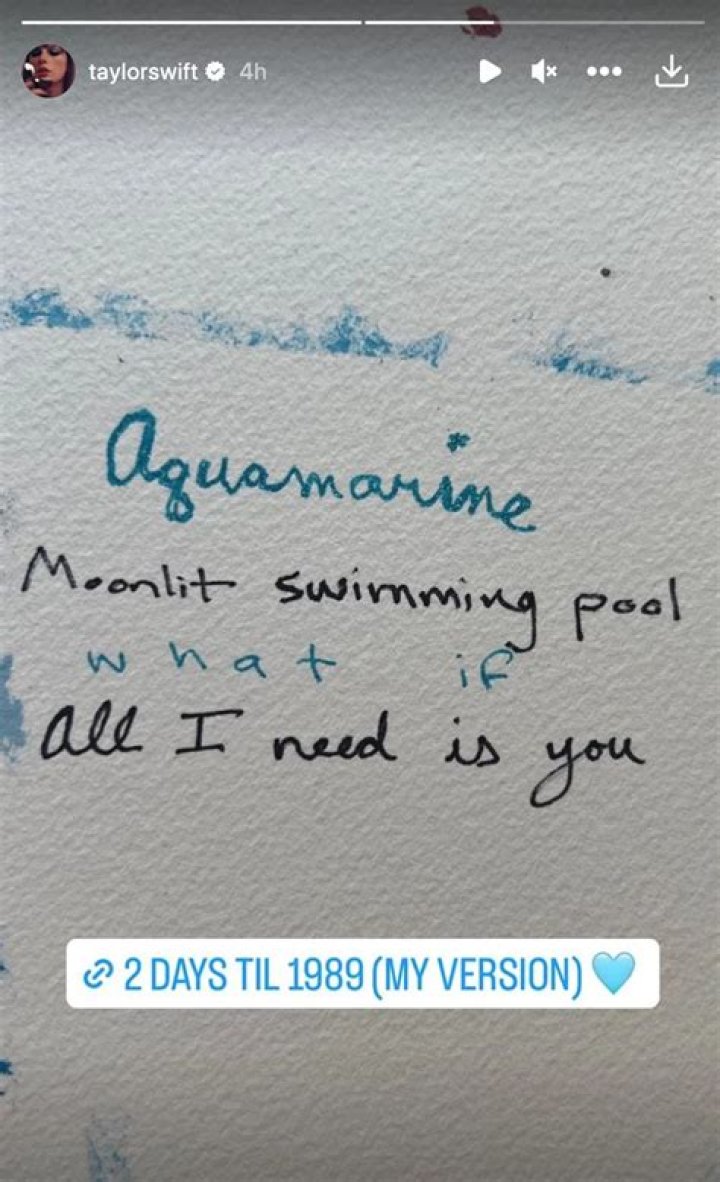 taylorswift 4h
Aquamarine
Moonlit swimming pool
what if
All I need is you
2 DAYS TIL 1989 (MY VERSION) 🩵